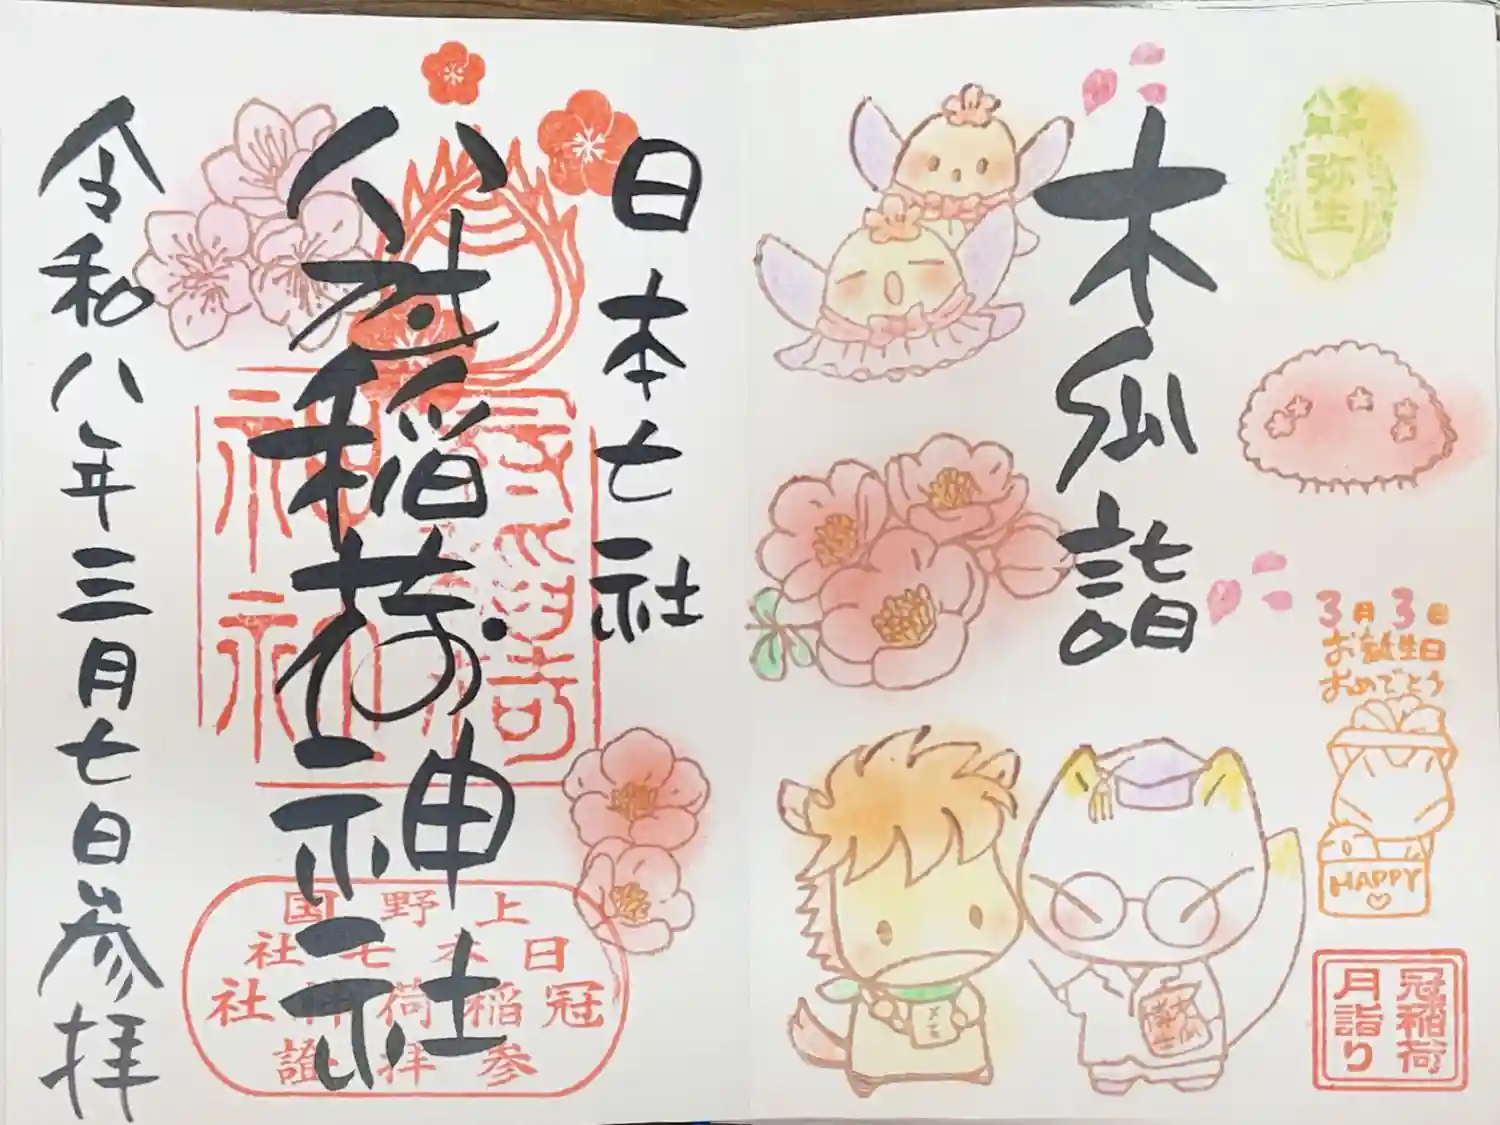 木瓜詣
弥生
3月3日
お誕生日
おめでとう
HAPPY
冠稲荷
月詣り
日本七社
冠稲荷神社
令和八年三月七日参拝
上野国
日本七社
冠稲荷神社
参拝證